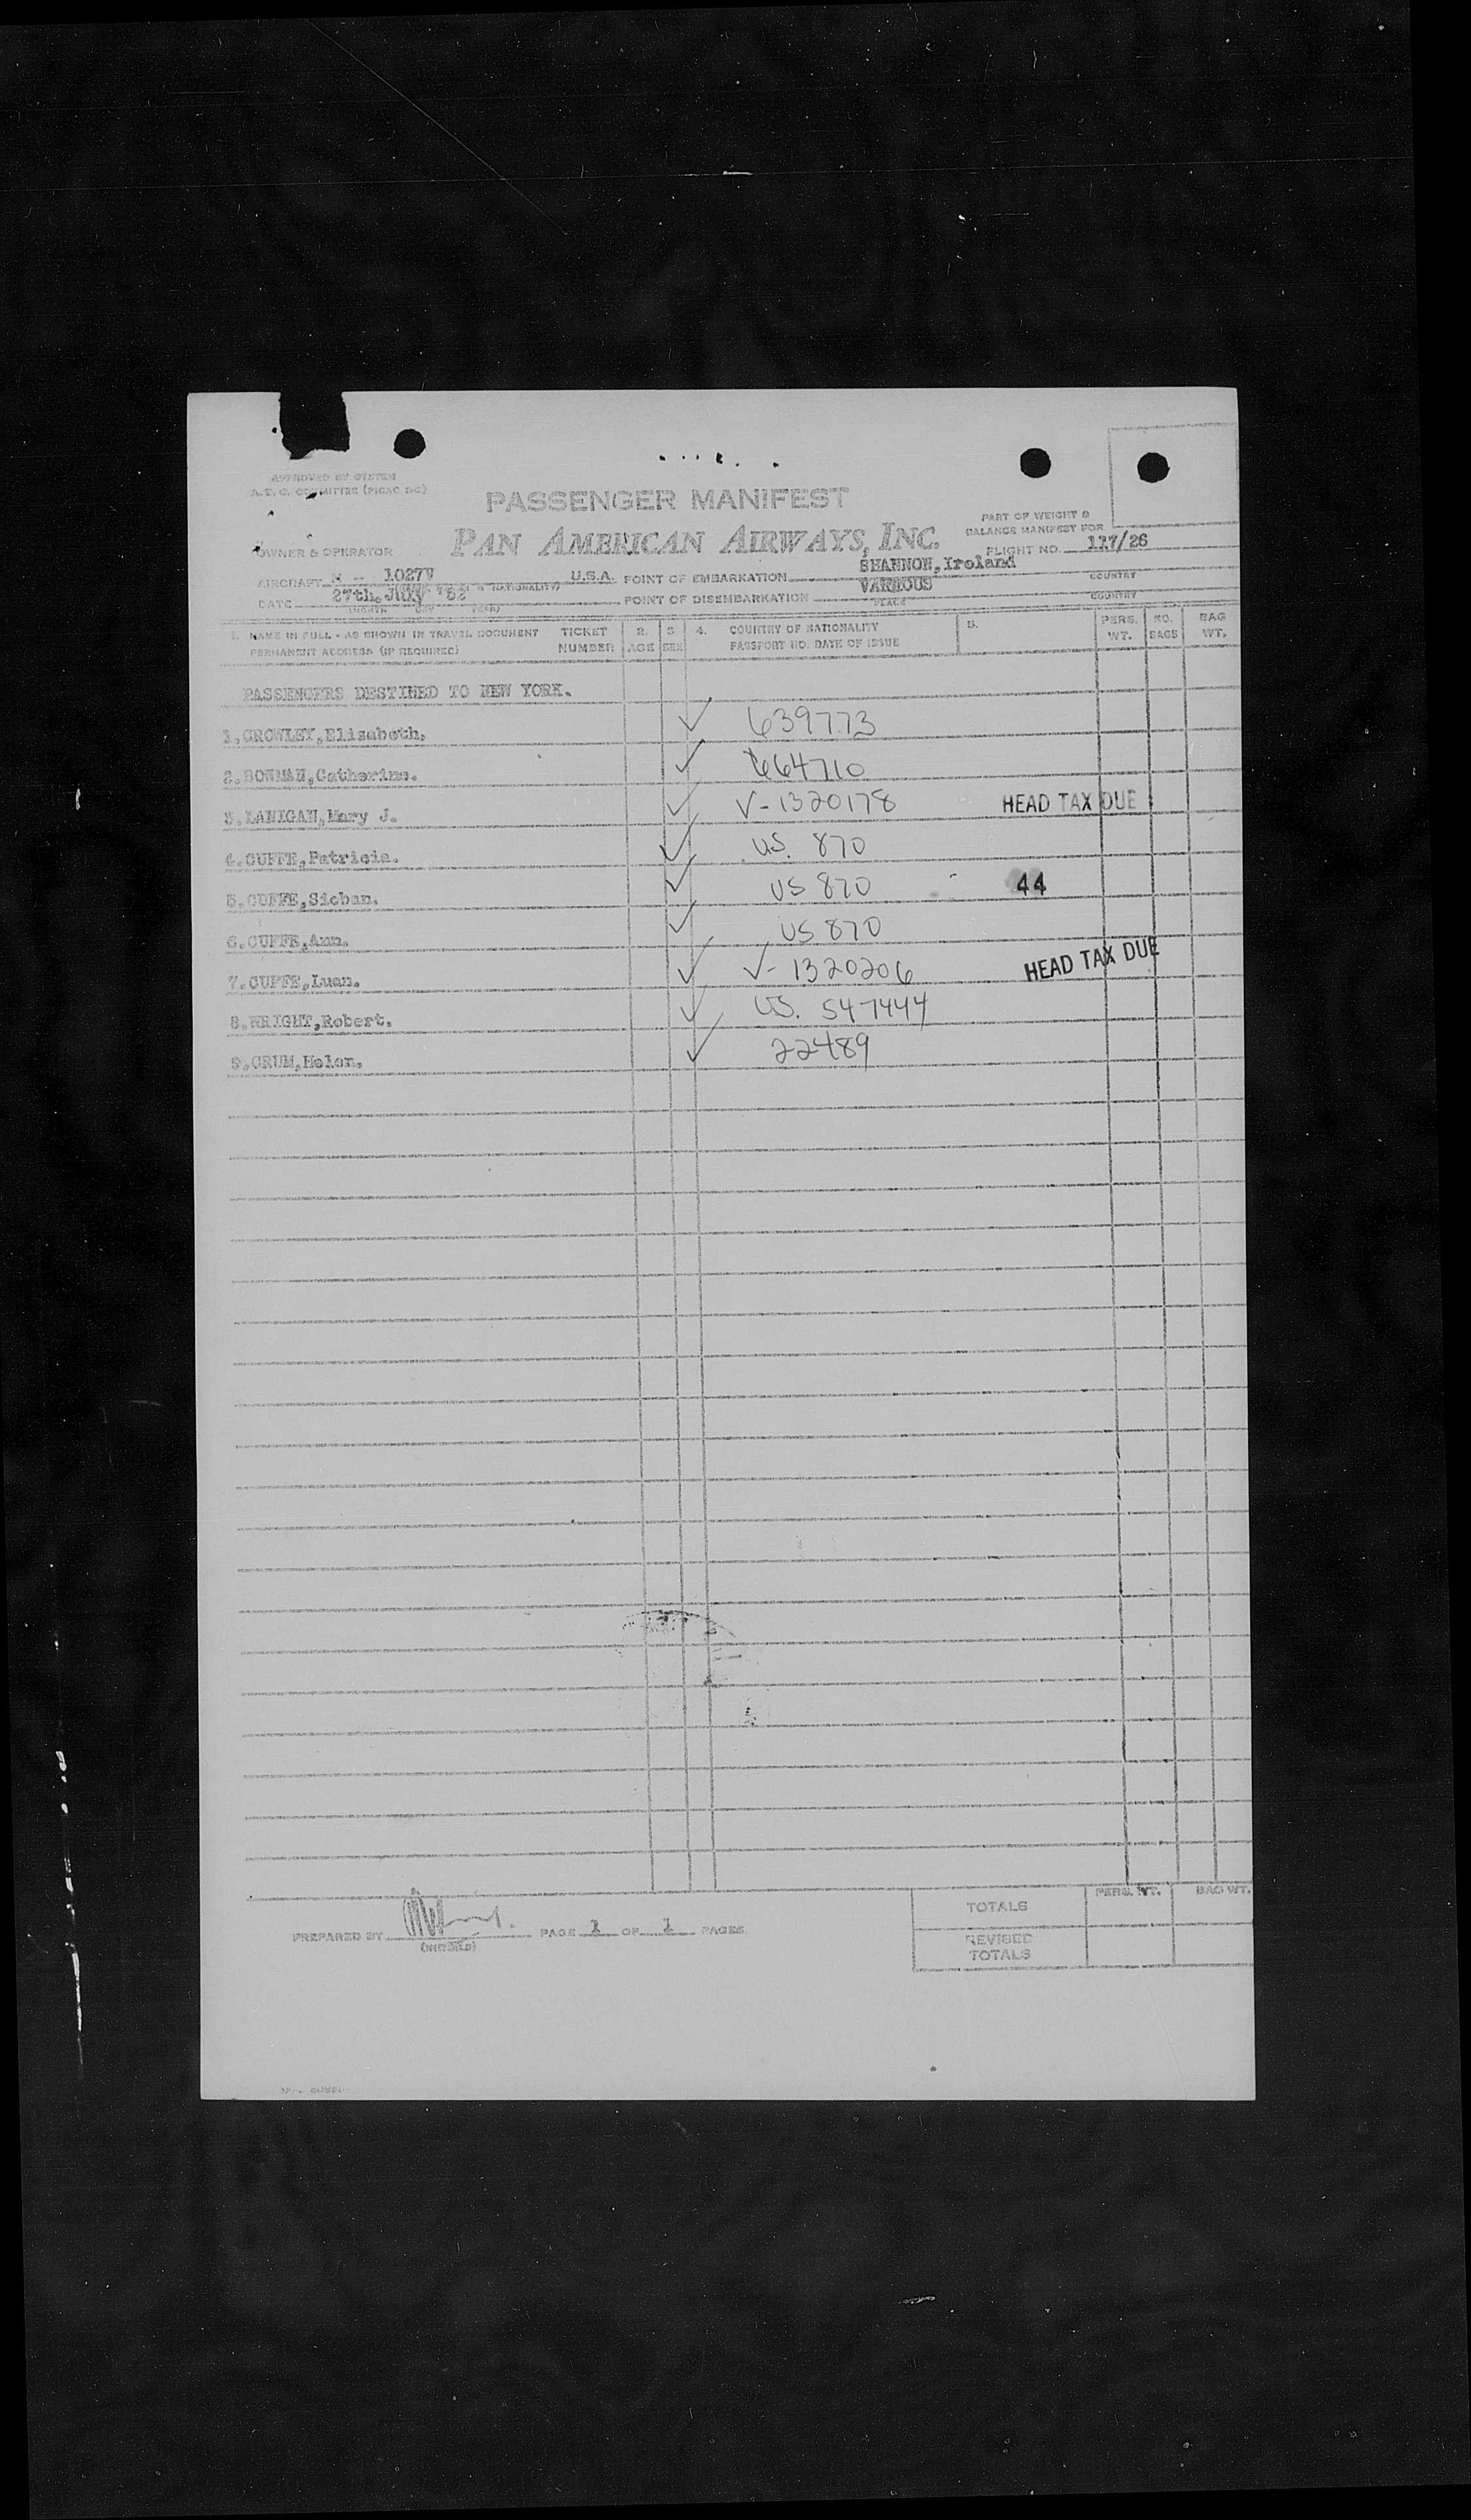 APPROVED BY SYSTEM
A.T.C. COMMITTEE
PASSENGER MANIFEST
PAN AMERICAN AIRWAYS, INC.
PART OF WEIGHT &
BALANCE MANIFEST FOR
FLIGHT NO. 117/26
OWNER & OPERATOR
AIRCRAFT N - 1027V U.S.A. POINT OF EMBARKATION SHANNON, Ireland
NATIONALITY) COUNTRY
DATE 27th. July 52 POINT OF DISEMBARKATION VARIOUS
(MONTH DAY YEAR) PLACE COUNTRY
1. NAME IN FULL - AS SHOWN IN TRAVEL DOCUMENT TICKET 2. 3 4. COUNTRY OF NATIONALITY 5. PERS. NO. BAG
PERMANENT ADDRESS (IF REQUIRED) NUMBER AGE SEX PASSPORT NO. DATE OF ISSUE WT. BAGS WT.
PASSENGERS DESTINED TO NEW YORK.
1.CROWLEY,Elizabeth. ✓ 639773
2.BOWMAN,Catherine. ✓ 664710
3.LANIGAN,Mary J. ✓ V-1320178 HEAD TAX DUE
4.CUFFE,Patricia. ✓ US. 870
5.CUFFE,Sioban. ✓ US 870 44
6.CUFFE,Ann. ✓ US 870
7.CUFFE,Luan. ✓ V-1320206 HEAD TAX DUE
8.WRIGHT,Robert. ✓ US. 547444
9.CRUM,Helen. ✓ 22489
PERS. WT. BAG WT.
TOTALS
PREPARED BY PAGE 1 OF 1 PAGES
(INITIALS)
REVISED
TOTALS